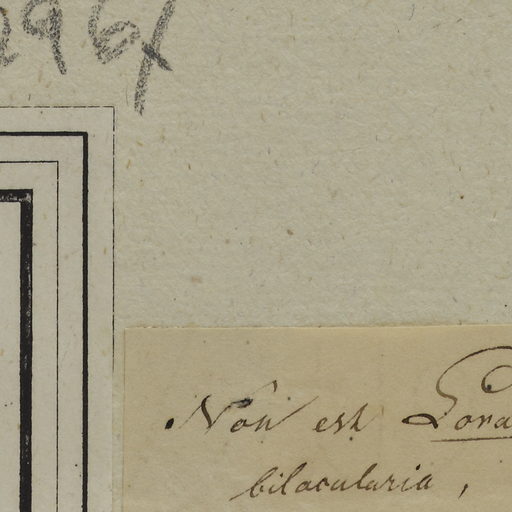 296/
Non est Lora
bilocularia,